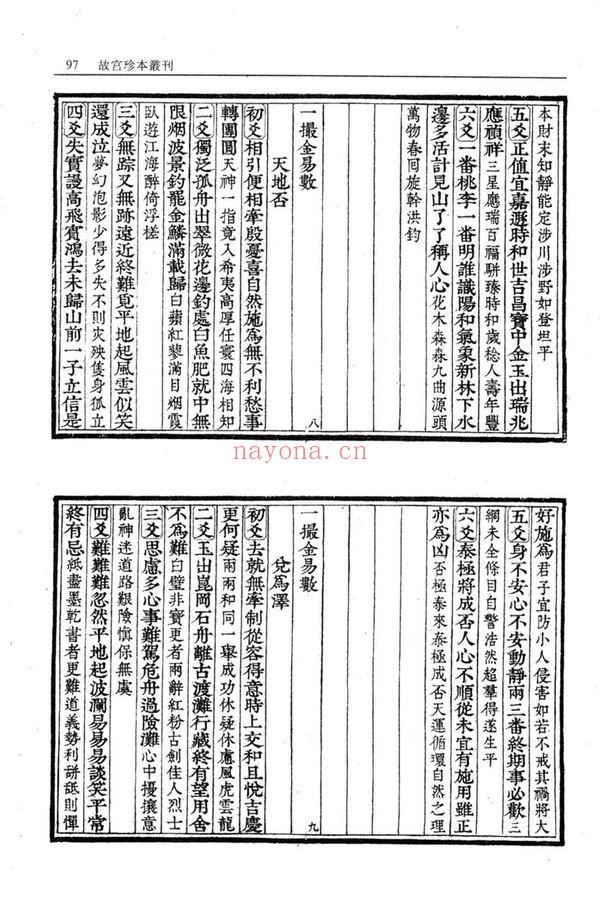 97 故宮珍本叢刊
本財末知靜能定涉川涉野如登坦平
五爻正值宜嘉遯時和世吉昌寶中金玉出瑞兆
應禎祥三星應瑞百福駢臻時和歲稔人壽年豐
六爻一番桃李一番明誰識陽和氣象新林下水
邊多活計見山了了稱人心花木森森九曲源頭
萬物春回旋斡洪鈞
一撮金易數
八
天地否
初爻相引便相牽殷憂喜自然施為無不利愁事
轉團圓天神一指竟入希夷高厚任寰四海相知
二爻獨泛孤舟出翠微花邊釣處白魚肥就中無
限烟波景釣罷金鱗滿載歸白蘋紅蓼滿目烟霞
臥遊江海醉倚浮槎
三爻無踪又無跡遠近終難覓平地起風雲似笑
還成泣夢幻泡影少得多失不則灾殃隻身孤立
四爻失實謾高飛賓鴻去未歸山前一子立信是
好施為君子宜防小人侵害如若不戒其禍將大
五爻身不安心不安動靜兩三番終期事必歡三
綱未全條目自警浩然超羣得遂生平
六爻泰極將成否人心不順從未宜有施用雖正
亦為凶否極泰來泰極成否天運循環自然之理
一撮金易數
九
兌為澤
初爻去就無牽制從容得意時上交和且悅吉慶
更何疑兩兩和同一舉成功休疑休慮風虎雲龍
二爻玉出崑岡石舟離古渡灘行藏終有望用舍
不為難白璧非寶更者兩辭紅粉古劍佳人烈士
三爻思慮多心事難駕危舟過險灘心中擾攘意
亂神迷道路艱險慎保無虞
四爻難難難忽然平地起波瀾易易易談笑平常
終有忌紙盡墨乾書者更難道義勢利辭舐則憚
nayona.cn